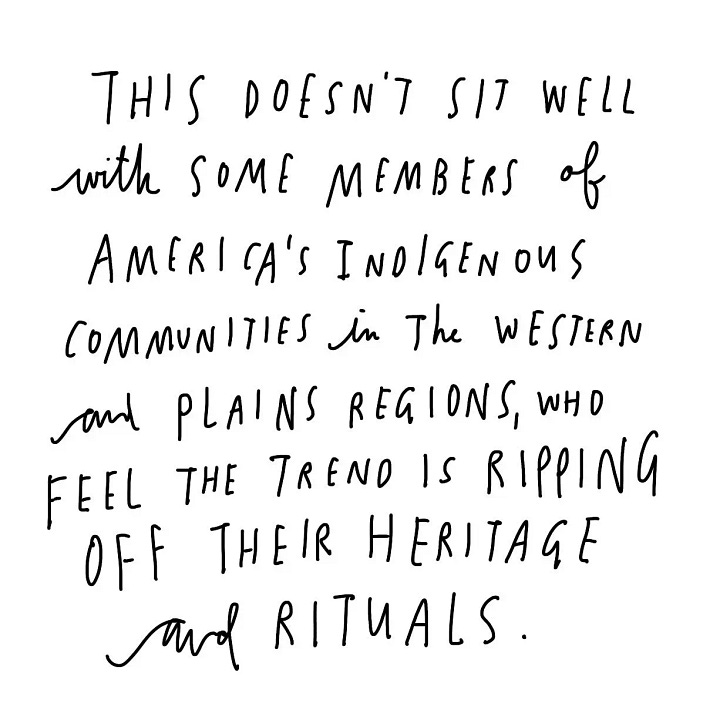 THIS DOESN'T SIT WELL
with SOME MEMBERS of
AMERICA'S INDIGENOUS
COMMUNITIES in The WESTERN
and PLAINS REGIONS, WHO
FEEL THE TREND IS RIPPING
OFF THEIR HERITAGE
and RITUALS.